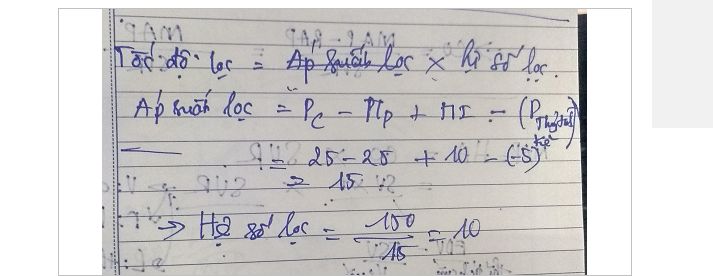 Tốc độ lọc = Áp suất lọc × hệ số lọc.
Áp suất lọc = Pc - πp + πI - (P Thuỷ tĩnh kẽ)
= 25 - 25 + 10 - (-5)
= 15
→ Hệ số lọc = 150/15 = 10